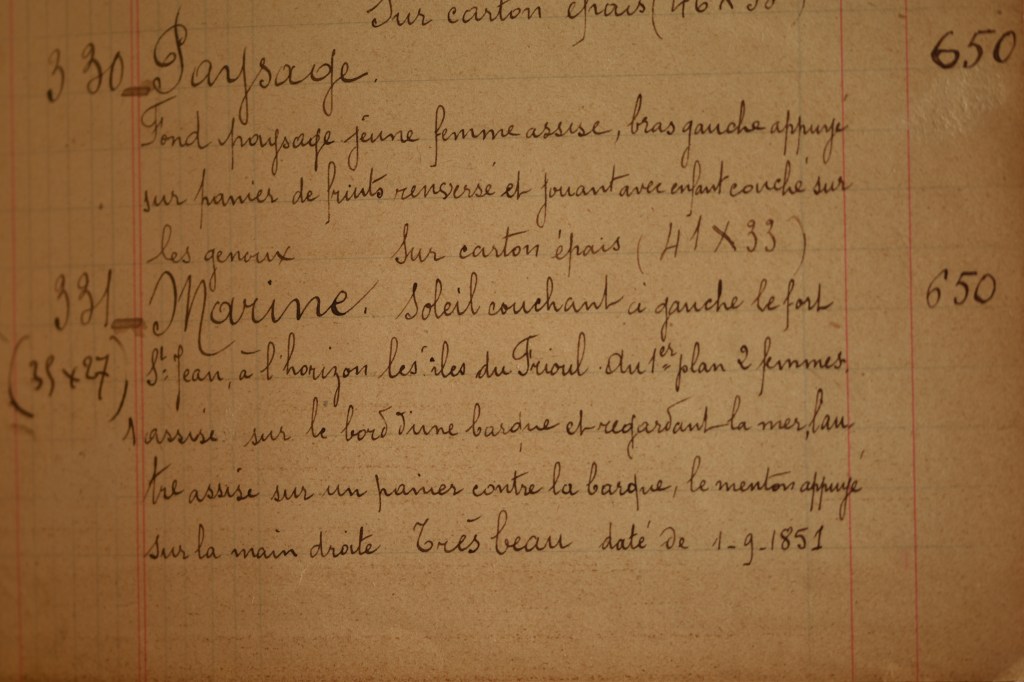 Sur carton épais (46 x 38)
330 - Paysage. 650
Fond paysage jeune femme assise, bras gauche appuyé
sur panier de fruits renversé et jouant avec enfant couché sur
les genoux Sur carton épais (41 X 33)
331 - Marine. Soleil couchant à gauche le fort 650
(35 x 27) St. Jean, à l'horizon les îles du Frioul. Au 1er plan 2 femmes.
1 assise sur le bord d'une barque et regardant la mer, l'au
tre assise sur un panier contre la barque, le menton appuyé
sur la main droite Très beau daté de 1-9-1851